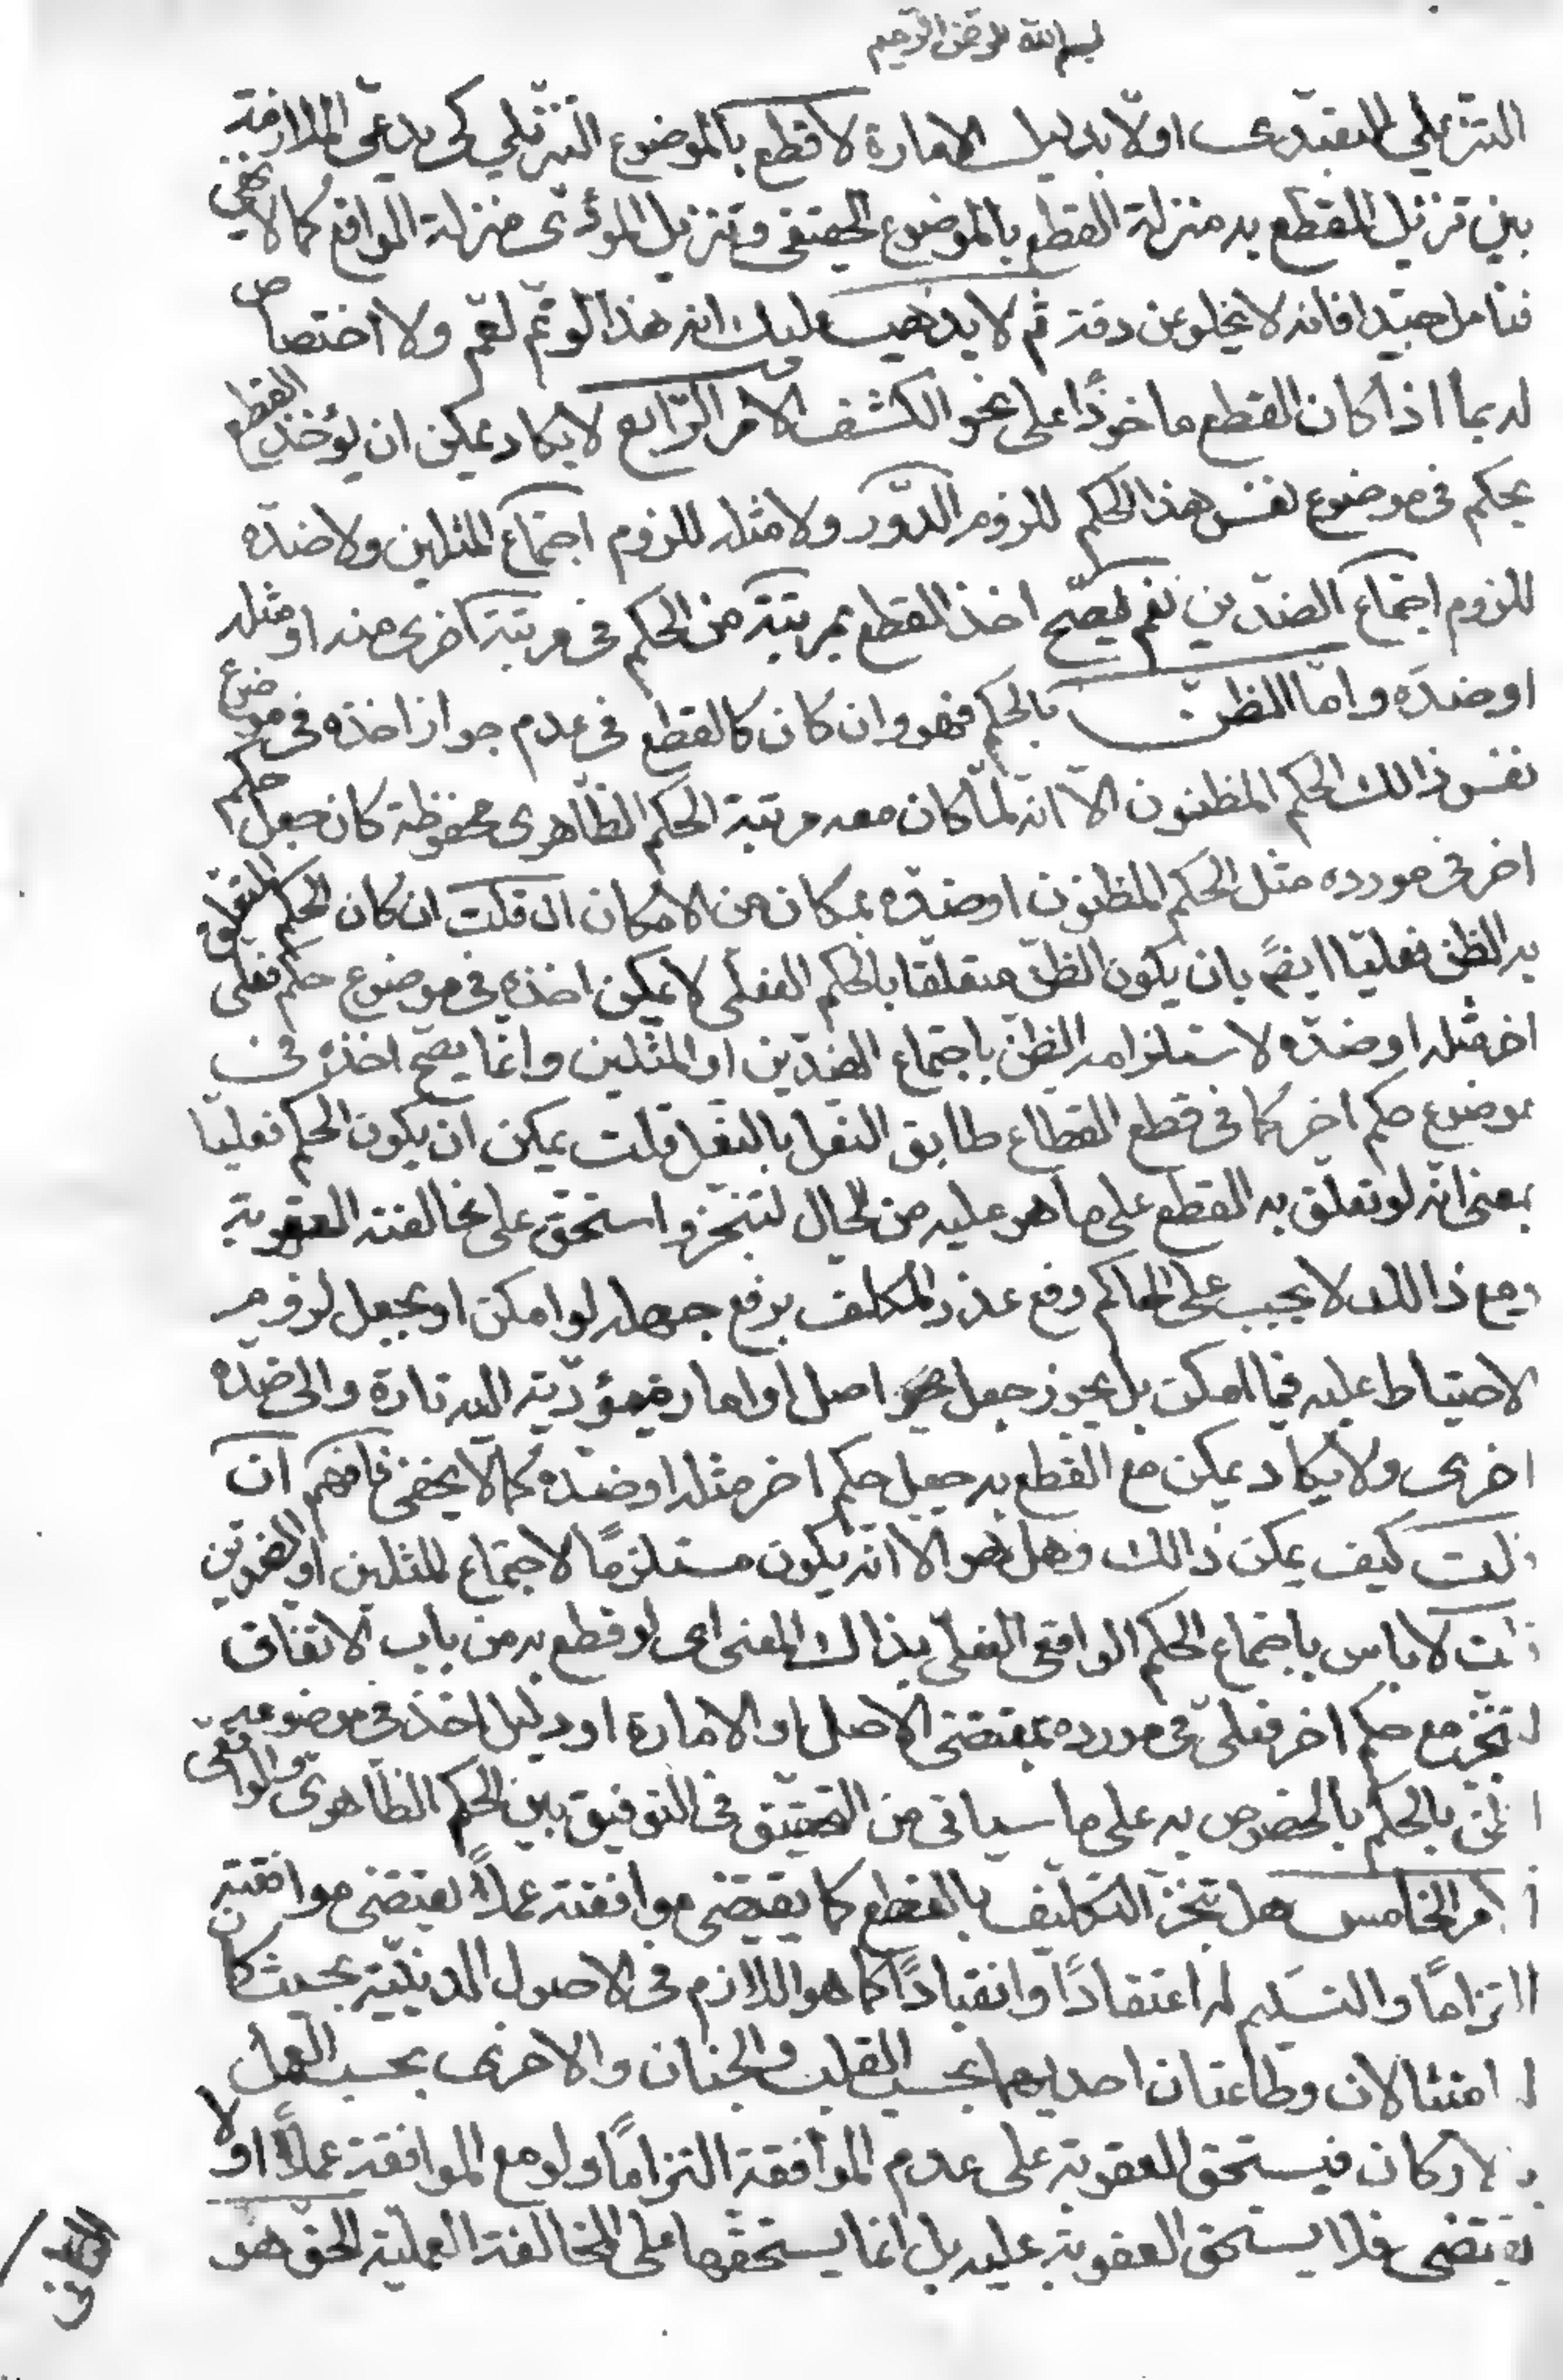 بسم الله الرحمن الرحيم
التنزيلي التعبدي اولا بدليل الامارة لا قطع بالموضوع التنزيلي كي يدعى الملازمة
بين تنزيل القطع به منزلة القطع بالموضوع الحقيقي وتنزيل المؤدى منزلة الواقع كما لا يخفى
فتامل جيدا فانه لا يخلو عن دقة ثم لا يذهب عليك انه هذا لو تم لعم ولا اختصاص
له بما اذا كان القطع ماخوذا على نحو الكشف الامر الرابع لا يكاد يمكن ان يؤخذ القطع
بحكم في موضوع نفس هذا الحكم للزوم الدور ولا مثله للزوم اجتماع المثلين ولا ضده
للزوم اجتماع الضدين نعم يصح اخذ القطع بمرتبة من الحكم في مرتبة اخرى منه او مثله
او ضده واما الظن بالحكم فهو وان كان كالقطع في عدم جواز اخذه في موضوع
نفس ذالك الحكم المظنون الا انه لما كان معه مرتبة الحكم الظاهرى محفوظة كان جعل حكم
اخر في مورده مثل الحكم المظنون او ضده بمكان من الامكان ان قلت ان كان الحكم المتعلق
به الظن فعليا ايضا بان يكون الظن متعلقا بالحكم الفعلى لا يمكن اخذه في موضوع حكم فعلى
اخر مثله او ضده لاستلزامه الظن باجتماع الضدين او المثلين وانما يصح اخذه في
موضوع حكم اخر كما في قطع القطاع طابق النعل بالنعل قلت يمكن ان يكون الحكم فعليا
بمعنى انه لو تعلق به القطع على ما هو عليه من الحال لتنجز واستحق على مخالفته العقوبة
ومع ذالك لا يجب على الحاكم رفع عذر المكلف برفع جهله لو امكن او بجعل لزوم
الاحتياط عليه فيما امكن بل يجوز جعل اصل او امارة مؤدية اليه تارة والى ضده
اخرى ولا يكاد يمكن مع القطع به جعل حكم اخر مثله او ضده كما لا يخفى فافهم ان
قلت كيف يمكن ذالك وهل هو الا انه يكون مستلزما لاجتماع المثلين او الضدين
قلت لا باس باجتماع الحكم الواقعى الفعلى بذاك المعنى اى لو قطع به من باب الاتفاق
لتنجز مع حكم اخر فعلى في مورده بمقتضى الاصل او الامارة او دليل اخذ في موضوعه
الظن بالحكم بالخصوص به على ما سياتى من التحقيق في التوفيق بين الحكم الظاهرى والواقعى
الامر الخامس هل تنجز التكليف بالقطع كما يقتضى موافقته عملا يقتضى موافقته
التزاما والتسليم له اعتقادا وانقيادا كما هو اللازم في الاصول الدينية بحيث كان
له امتثالان وطاعتان احديهما بحسب القلب والجنان والاخرى بحسب العمل
بالاركان فيستحق العقوبة على عدم الموافقة التزاما ولو مع الموافقة عملا او لا
يقتضى فلا يستحق العقوبة عليه بل انما يستحقها على المخالفة العملية الحق هو
الثانى